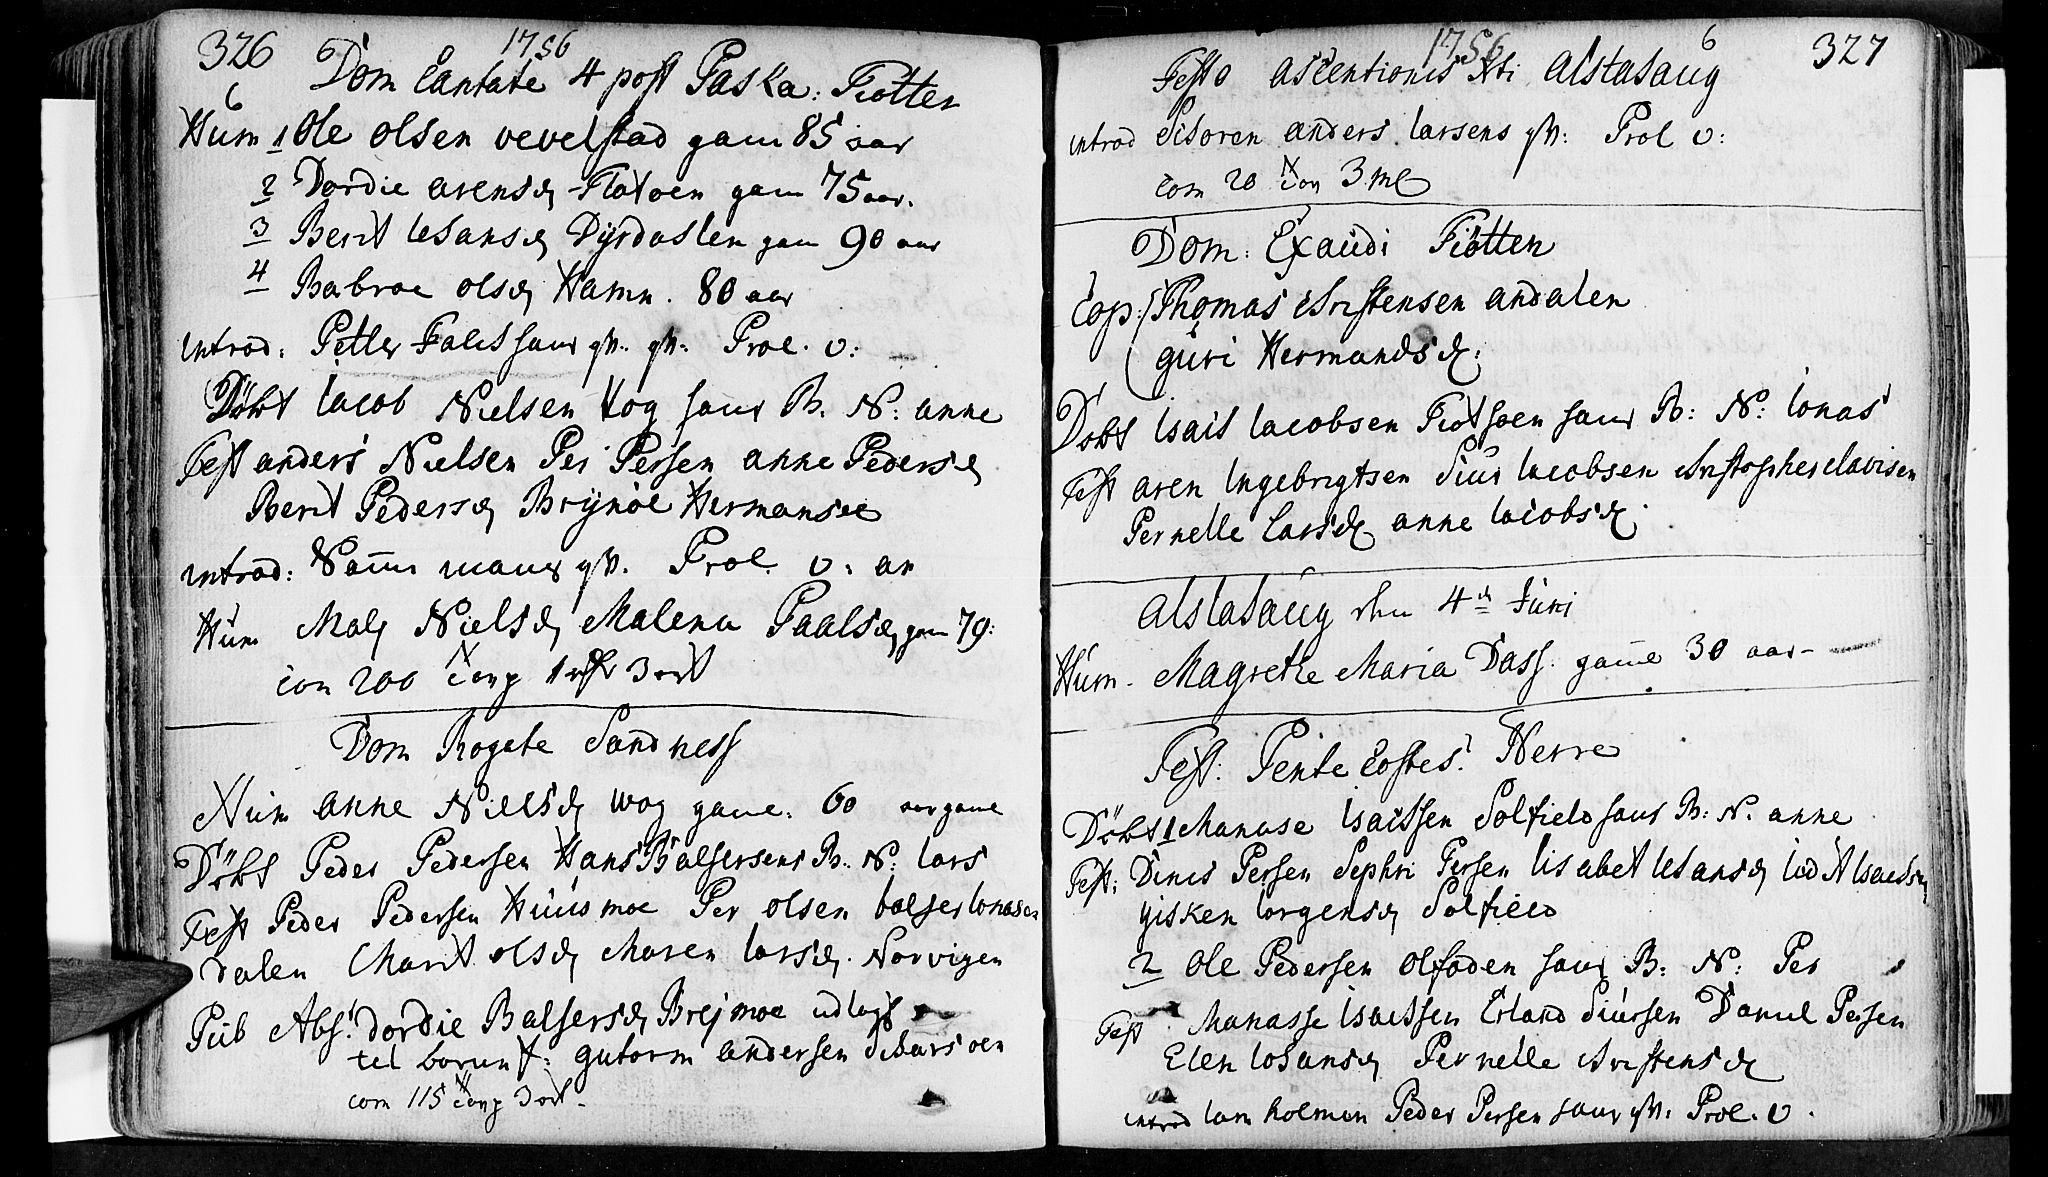 326
1756
Dom Cantate 4 post Paska: Tiøtten
6
Hum 1 Ole olsen vevelstad gam 85 aar
2 Dordie arensd Flatøen gam 75 aar.
3 Berit Johansd Dyrdaslen gam 90 aar
4 Barbroe olsd Hamn. 80 aar
introd: Petter Falch Prol. v:
Døbt Jacob Nielsen B. N: anne
Fest anders Nielsen Per Persen anne Pedersd
Berit Pedersd Brynøe Hermansen
introd: Prol. v: an
Hum Mal Nielsd Malena Paalsd gam 79:
com 200 3 ort
Dom Rogate Sandness
Hum anne Nielsd Vog game. 60 aar game
Døbt Peder Pedersen Hans Balsersens B. N: Lars
Fest Peder Pedersen Huusmoe Per olsen balser Jonasen
Dalen Marit olsd Maren Larsd. Norvigen
Pub Abs: Dordie Balsersd Brejmoe udlagt
til barnf: gutorm andersen
com 115 3 ort.
327
1756
6
Festo ascentionis Xti Alstahaug
introd anders Larsens Prol v:
com 20 3 mk
Dom: Exaudi Tiøtten
Cop: Thomas Christensen andalen
guri Hermandsd:
Døbt Isach Jacobsen B: N: Jonas
Fest aren Ingebrigtsen Siur Jacobsen Christopher Clavisen
Pernelle Larsd anne Jacobsd.
Alstahaug den 4de Juni
Hum. Magrethe Maria Dass. game 30 aar
Fest: Pentecostes: Herre
Døbt 1 Manase Isachsen Solfield B: N. anne
Fest: Dinis Persen Sephri Persen Lisabet Johansd
gisken Jorgensd Solfield
2 Ole Pedersen B: N: Per
Fest Manasse Isachsen Erland Siursen Daniel Persen
Elen Johansd Pernelle Christensd
introd holmen Peder Persen Prol. v.